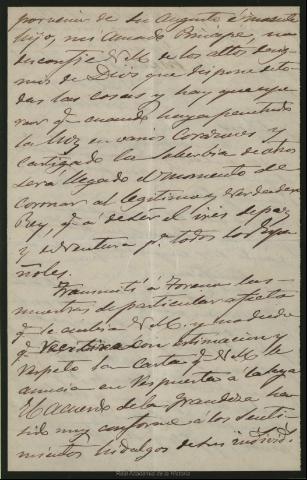 porvenir de su Augusto é inocente
hijo, mi Amado Príncipe, no
desconfie V.M. de los altos desig-
nios de Dios que dispone de to-
das las cosas y hay que espe-
rar q. cuando haya penetrado
la luz en varios Corazones y
castigado la soberbia de otros
será llegado el momento de
coronar al legítimo y verdadero
Rey, q. á de ser el iris de paz
y ventura p. todos los Espa-
ñoles.
Transmití á Toreno las
muestras de particular afecto
q. le envia V.M. y me dice
q. recibira con estimacion y
respeto la carta q. V.M. le
anuncia en respuesta á la suya
El acuerdo de la Grandeza ha
sido muy conforme á los senti-
mientos hidalgos de sus individ.
Real Academia de la Historia